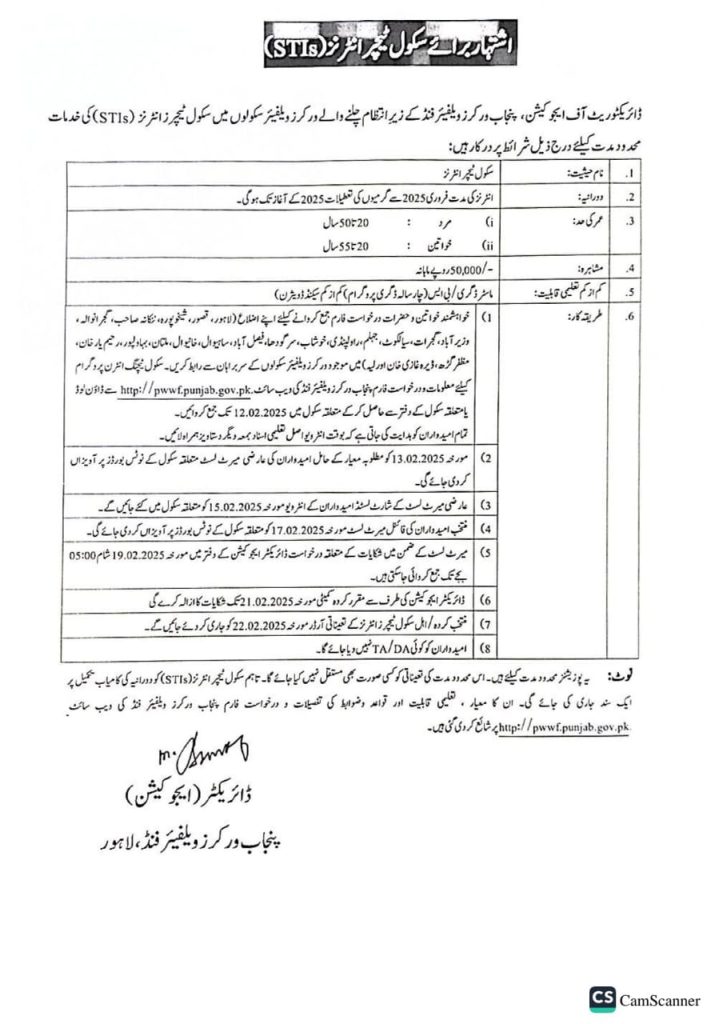 اشتہار برائے سکول ٹیچر انٹرنز (STIs)
ڈائریکٹوریٹ آف ایجوکیشن، پنجاب ورکرز ویلفیئر فنڈ کے زیر انتظام چلنے والے ورکرز ویلفیئر سکولوں میں سکول ٹیچرز انٹرنز (STIs) کی خدمات
محدود مدت کیلئے درج ذیل شرائط پر درکار ہیں:
1. نام حیثیت: سکول ٹیچر انٹرنز
2. دورانیہ: انٹرنز کی مدت فروری 2025 سے گرمیوں کی تعطیلات 2025 کے آغاز تک ہوگی۔
3. عمر کی حد: i) مرد : 20 تا 50 سال
ii) خواتین : 20 تا 55 سال
4. مشاہرہ: 50,000/- روپے ماہانہ
5. کم از کم تعلیمی قابلیت: ماسٹر ڈگری/ بی ایس (چار سالہ ڈگری پروگرام) کم از کم سیکنڈ ڈویژن)
6. طریقہ کار: 1) خواہشمند خواتین و حضرات درخواست فارم جمع کروانے کیلئے اپنے اضلاع (لاہور، قصور، شیخوپورہ، ننکانہ صاحب، گجرانوالہ،
وزیر آباد، گجرات، سیالکوٹ، جہلم، راولپنڈی، خوشاب، سرگودھا، فیصل آباد، ساہیوال، خانیوال، ملتان، بہاولپور، رحیم یار خان،
مظفر گڑھ، ڈیرہ غازی خان اور لیہ) میں موجود ورکرز ویلفیئر سکولوں کے سربراہان سے رابطہ کریں۔ سکول ٹیچنگ انٹرن پروگرام
کیلئے معلومات و درخواست فارم پنجاب ورکرز ویلفیئر فنڈ کی ویب سائٹ http://pwwf.punjab.gov.pk. سے ڈاؤن لوڈ
یا متعلقہ سکول کے دفتر سے حاصل کر کے متعلقہ سکول میں 12.02.2025 تک جمع کروائیں۔
تمام امیدواران کو ہدایت کی جاتی ہے کہ بوقت انٹرویو اصل تعلیمی اسناد بمعہ دیگر دستاویز ہمراہ لائیں۔
2) مورخہ 13.02.2025 کو مطلوبہ معیار کے حامل امیدواران کی عارضی میرٹ لسٹ متعلقہ سکول کے نوٹس بورڈز پر آویزاں
کر دی جائے گی۔
3) عارضی میرٹ لسٹ کے شارٹ لسٹڈ امیدواران کے انٹرویو مورخہ 15.02.2025 کو متعلقہ سکول میں کئے جائیں گے۔
4) منتخب امیدواران کی فائنل میرٹ لسٹ مورخہ 17.02.2025 کو متعلقہ سکول کے نوٹس بورڈز پر آویزاں کر دی جائے گی۔
5) میرٹ لسٹ کے ضمن میں شکایات کے متعلقہ درخواست ڈائریکٹر ایجوکیشن کے دفتر میں مورخہ 19.02.2025 شام 05:00
بجے تک جمع کروائی جاسکتی ہیں۔
6) ڈائریکٹر ایجوکیشن کی طرف سے مقرر کردہ کمیٹی مورخہ 21.02.2025 تک شکایات کا ازالہ کرے گی
7) منتخب کردہ/ اہل سکول ٹیچرز انٹرنز کے تعیناتی آرڈر مورخہ 22.02.2025 کو جاری کر دئے جائیں گے۔
8) امیدواران کو کوئی TA/DA نہیں دیا جائے گا۔
نوٹ: یہ پوزیشنز محدود مدت کیلئے ہیں۔ اس محدود مدت کی تعیناتی کو کسی صورت بھی مستقل نہیں کیا جائے گا۔ تاہم سکول ٹیچرز انٹرنز (STIs) کو دورانیہ کی کامیاب تکمیل پر
ایک سند جاری کی جائے گی۔ ان کا معیار، تعلیمی قابلیت اور قواعد و ضوابط کی تفصیلات و درخواست فارم پنجاب ورکرز ویلفیئر فنڈ کی ویب سائٹ
http://pwwf.punjab.gov.pk. پر شائع کر دی گئی ہیں۔
ڈائریکٹر (ایجوکیشن)
پنجاب ورکرز ویلفیئر فنڈ، لاہور
CS CamScanner